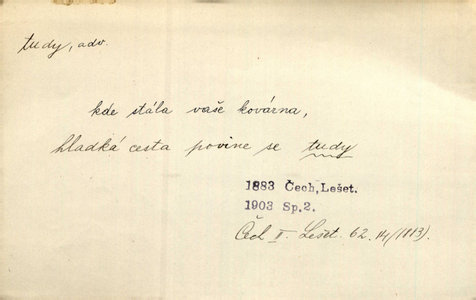 tudy, adv.
kde stála vaše kovárna,
hladká cesta povine se tudy
1883 Čech, Lešet.
1903 Sp.2.
Čch II. Lešet. 62. 14/(1113).